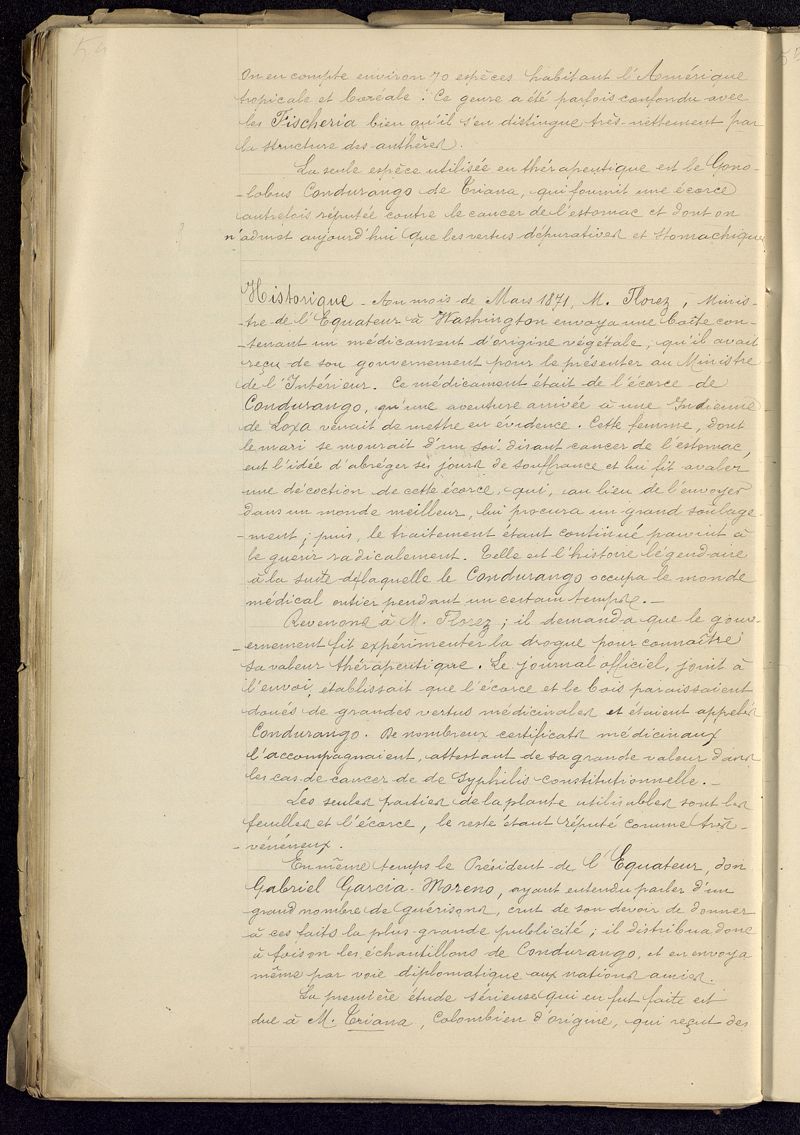 54
On en compte environ 70 espèces habitant l'Amérique
tropicale et boréale. Ce genre a été parfois confondu avec
les Fischeria bien qu'il s'en distingue très-nettement par
la structure des anthères.
La seule espèce utilisée en thérapeutique est le Gono-
-lobus Condurango de Triana, qui fournit une écorce
autrefois réputée contre le cancer de l'estomac et dont on
n'admet aujourd'hui que les vertus dépuratives et stomachiques
Historique - Au mois de Mars 1871, M. Florez, Minis-
-tre de l'Equateur à Washington envoya une boîte con-
-tenant un médicament d'origine végétale, qu'il avait
reçu de son gouvernement pour le présenter au Ministre
de l'Intérieur. Ce médicament était de l'écorce de
Condurango, qu'une aventure arrivée à une Indienne
de Loxa venait de mettre en évidence. Cette femme, dont
le mari se mourait d'un soi-disant cancer de l'estomac,
eut l'idée d'abréger ses jours de souffrance et lui fit avaler
une décoction de cette écorce, qui, au lieu de l'envoyer
dans un monde meilleur, lui procura un grand soulage-
-ment; puis, le traitement étant continué parvint à
le guérir radicalement. Telle est l'histoire légendaire
à la suite de laquelle le Condurango occupa le monde
médical entier pendant un certain temps. -
Revenons à M. Florez; il demanda que le gouv-
-ernement fit expérimenter la drogue pour connaître
sa valeur thérapeutique. Le journal officiel, joint à
l'envoi, établissait que l'écorce et le bois paraissaient
doués de grandes vertus médicinales et étaient appelés
Condurango. De nombreux certificats médicinaux
l'accompagnaient, attestant de sa grande valeur dans
les cas de cancer de de Syphilis constitutionnelle. -
Les seules parties de la plante utilisables sont les
feuilles et l'écorce, le reste étant réputé comme très-
-vénéneux.
En même temps le Président de l'Equateur, don
Gabriel Garcia-Moreno, ayant entendu parler d'un
grand nombre de guérisons, crut de son devoir de donner
à ces faits la plus grande publicité; il distribua donc
à foison les échantillons de Condurango, et en envoya
même par voie diplomatique aux nations amies.
La première étude sérieuse qui en fut faite est
due à M. Triana, Colombien d'origine, qui reçut des